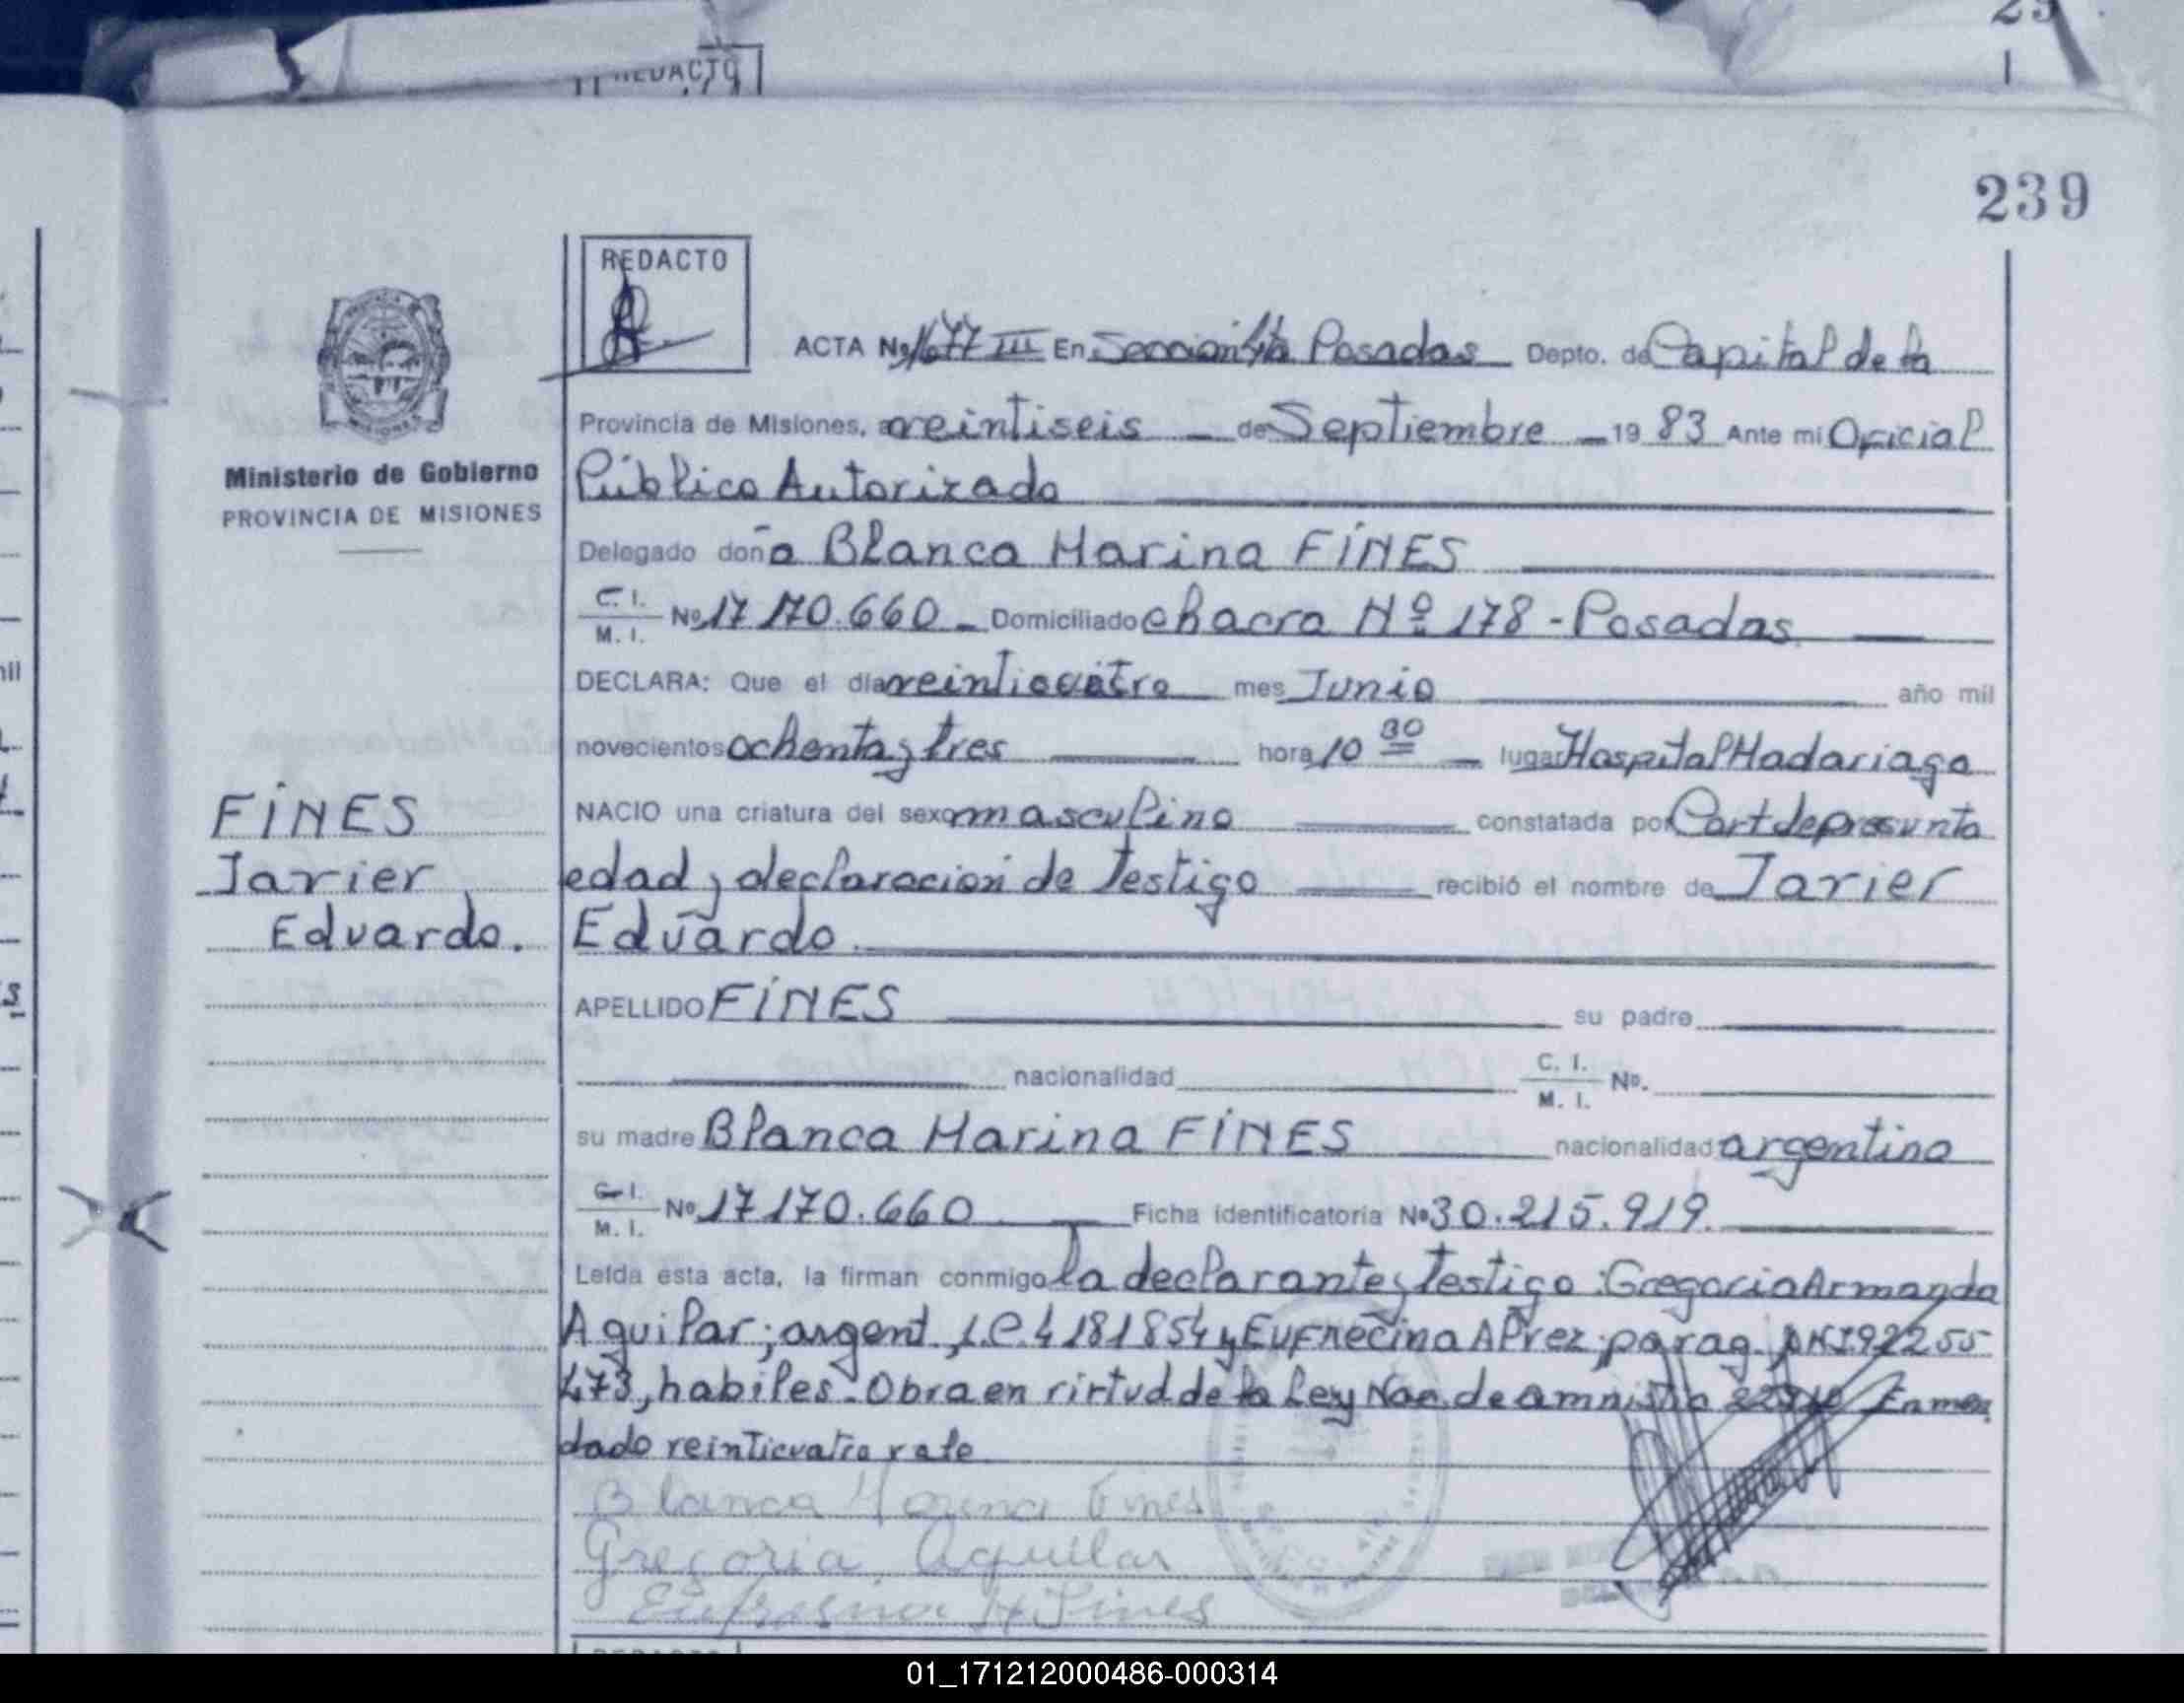 REDACTO
239
REDACTO
ACTA Nº 1677 III En Sección 4ta Posadas Depto. de Capital de la
Provincia de Misiones, a veintiseis de Septiembre 19 83 Ante mi Oficial
Público Autorizado
Ministerio de Gobierno
PROVINCIA DE MISIONES
Delegado doña Blanca Marina FINES
C. I. M. I. Nº 17 170.660 Domiciliado chacra Nº 178 - Posadas.
DECLARA: Que el día veinticuatro mes Junio año mil
novecientos ochenta y tres hora 10 30 lugar Hospital Madariaga
NACIO una criatura del sexo masculino constatada por Cert de presunta
edad y declaracion de Testigo recibió el nombre de Javier
Eduardo.
FINES
Javier
Eduardo.
APELLIDO FINES su padre
nacionalidad C. I. M. I. Nº.
su madre Blanca Marina FINES nacionalidad argentina
C. I. M. I. Nº 17 170.660 Ficha identificatoria Nº 30.215.919.
Leída esta acta, la firman conmigo la declarante y Testigo: Gregoria Armanda
Aguilar; argent, L.C. 4 181854 y A parag.
473, habiles. Obra en virtud de la Ley Nac de amnistia Enmen
dado veinticuatro vale
Blanca Marina Fines
Gregoria Aguilar
Fines
01_171212000486-000314